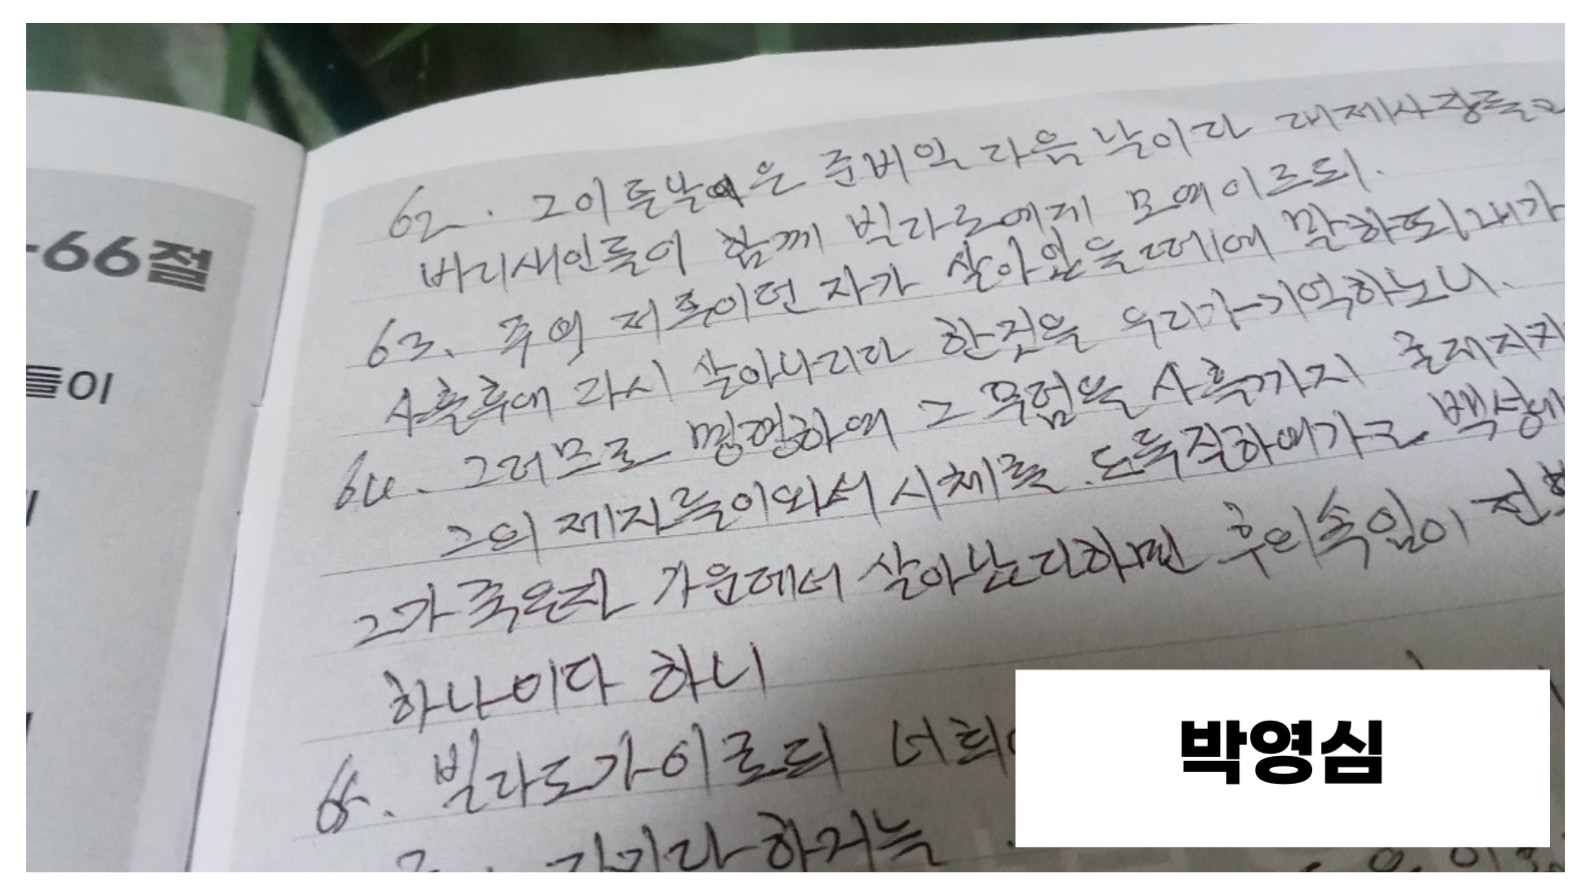 -66절
들이
62. 그 이튿날은 준비일 다음 날이라 대제사장들과
바리새인들이 함께 빌라도에게 모여 이르되.
63. 주여 저 속이던 자가 살아있을 때에 말하되 내가
사흘후에 다시 살아나리라 한것을 우리가 기억하노니.
64. 그러므로 명령하여 그 무덤을 사흘까지 굳게지키
그의 제자들이와서 시체를 도둑질하여가고 백성에
그가 죽은자 가운데서 살아났다하면 후의속임이 전보
하나이다 하니
65. 빌라도가이르되 너희
박영심